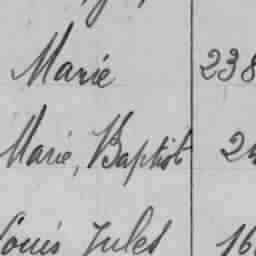 Marie 238
Marie, Baptist 24
Louis Jules 16